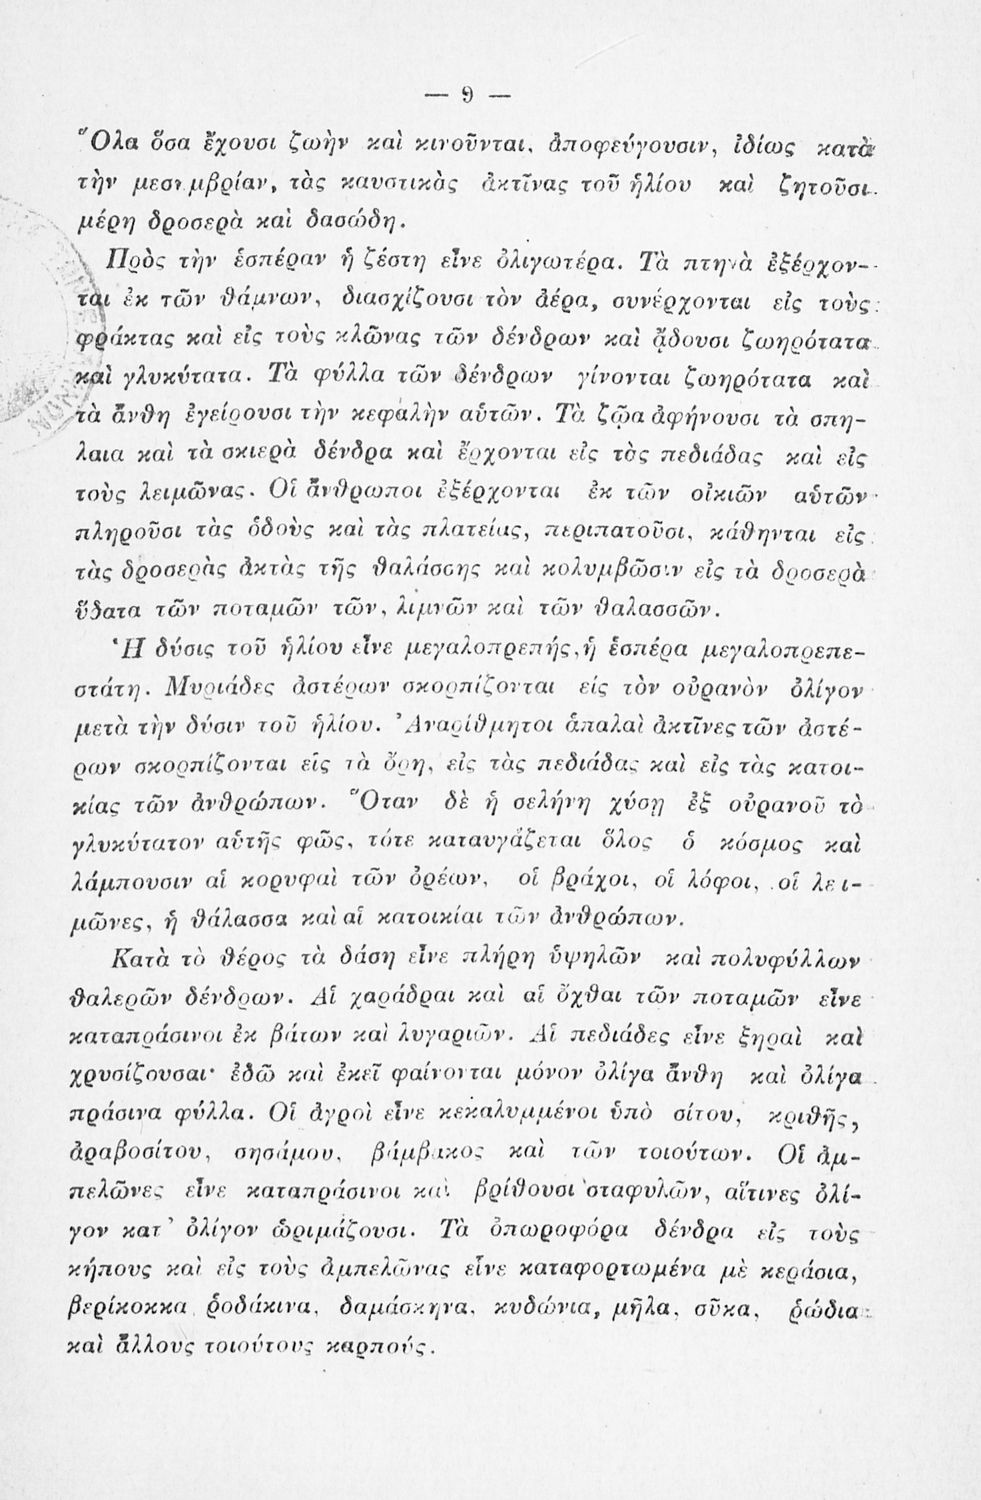 — 9 —
Ὅλα ὅσα ἔχουσι ζωὴν καὶ κινοῦνται, ἀποφεύγουσιν, ἰδίως κατὰ
τὴν μεσημβρίαν, τὰς καυστικὰς ἀκτῖνας τοῦ ἡλίου καὶ ζητοῦσι
μέρη δροσερὰ καὶ δασώδη.
Πρὸς τὴν ἑσπέραν ἡ ζέστη εἶνε ὀλιγωτέρα. Τὰ πτηνὰ ἐξέρχον-
ται ἐκ τῶν θάμνων, διασχίζουσι τὸν ἀέρα, συνέρχονται εἰς τοὺς
φράκτας καὶ εἰς τοὺς κλῶνας τῶν δένδρων καὶ ᾄδουσι ζωηρότατα
καὶ γλυκύτατα. Τὰ φύλλα τῶν δένδρων γίνονται ζωηρότατα καὶ
τὰ ἄνθη ἐγείρουσι τὴν κεφαλὴν αὑτῶν. Τὰ ζῷα ἀφήνουσι τὰ σπη-
λαια καὶ τὰ σκιερὰ δένδρα καὶ ἔρχονται εἰς τὰς πεδιάδας καὶ εἰς
τοὺς λειμῶνας. Οἱ ἄνθρωποι ἐξέρχονται ἐκ τῶν οἰκιῶν αὑτῶν
πληροῦσι τὰς ὁδοὺς καὶ τὰς πλατείας, περιπατοῦσι, κάθηνται εἰς
τὰς δροσερὰς ἀκτὰς τῆς θαλάσσης καὶ κολυμβῶσιν εἰς τὰ δροσερὰ
ὕδατα τῶν ποταμῶν τῶν, λιμνῶν καὶ τῶν θαλασσῶν.
Ἡ δύσις τοῦ ἡλίου εἶνε μεγαλοπρεπής, ἡ ἑσπέρα μεγαλοπρεπε-
στάτη. Μυριάδες ἀστέρων σκορπίζονται εἰς τὸν οὐρανὸν ὀλίγον
μετὰ τὴν δύσιν τοῦ ἡλίου. Ἀναρίθμητοι ἁπαλαὶ ἀκτῖνες τῶν ἀστέ-
ρων σκορπίζονται εἰς τὰ ὄρη, εἰς τὰς πεδιάδας καὶ εἰς τὰς κατοι-
κίας τῶν ἀνθρώπων. Ὅταν δὲ ἡ σελήνη χύσῃ ἐξ οὐρανοῦ τὸ
γλυκύτατον αὑτῆς φῶς, τότε καταυγάζεται ὅλος ὁ κόσμος καὶ
λάμπουσιν αἱ κορυφαὶ τῶν ὀρέων, οἱ βράχοι, οἱ λόφοι, οἱ λει-
μῶνες, ἡ θάλασσα καὶ αἱ κατοικίαι τῶν ἀνθρώπων.
Κατὰ τὸ θέρος τὰ δάση εἶνε πλήρη ὑψηλῶν καὶ πολυφύλλων
θαλερῶν δένδρων. Αἱ χαράδραι καὶ αἱ ὄχθαι τῶν ποταμῶν εἶνε
καταπράσινοι ἐκ βάτων καὶ λυγαριῶν. Αἱ πεδιάδες εἶνε ξηραὶ καὶ
χρυσίζουσαι· ἐδῶ καὶ ἐκεῖ φαίνονται μόνον ὀλίγα ἄνθη καὶ ὀλίγα
πράσινα φύλλα. Οἱ ἀγροὶ εἶνε κεκαλυμμένοι ὑπὸ σίτου, κριθῆς,
ἀραβοσίτου, σησάμου, βάμβακος καὶ τῶν τοιούτων. Οἱ ἀμ-
πελῶνες εἶνε καταπράσινοι καὶ βρίθουσι σταφυλῶν, αἵτινες ὀλί-
γον κατ' ὀλίγον ὡριμάζουσι. Τὰ ὀπωροφόρα δένδρα εἰς τοὺς
κήπους καὶ εἰς τοὺς ἀμπελῶνας εἶνε καταφορτωμένα μὲ κεράσια,
βερίκοκκα ῥοδάκινα, δαμάσκηνα, κυδώνια, μῆλα, σῦκα, ῥώδια
καὶ ἄλλους τοιούτους καρπούς.